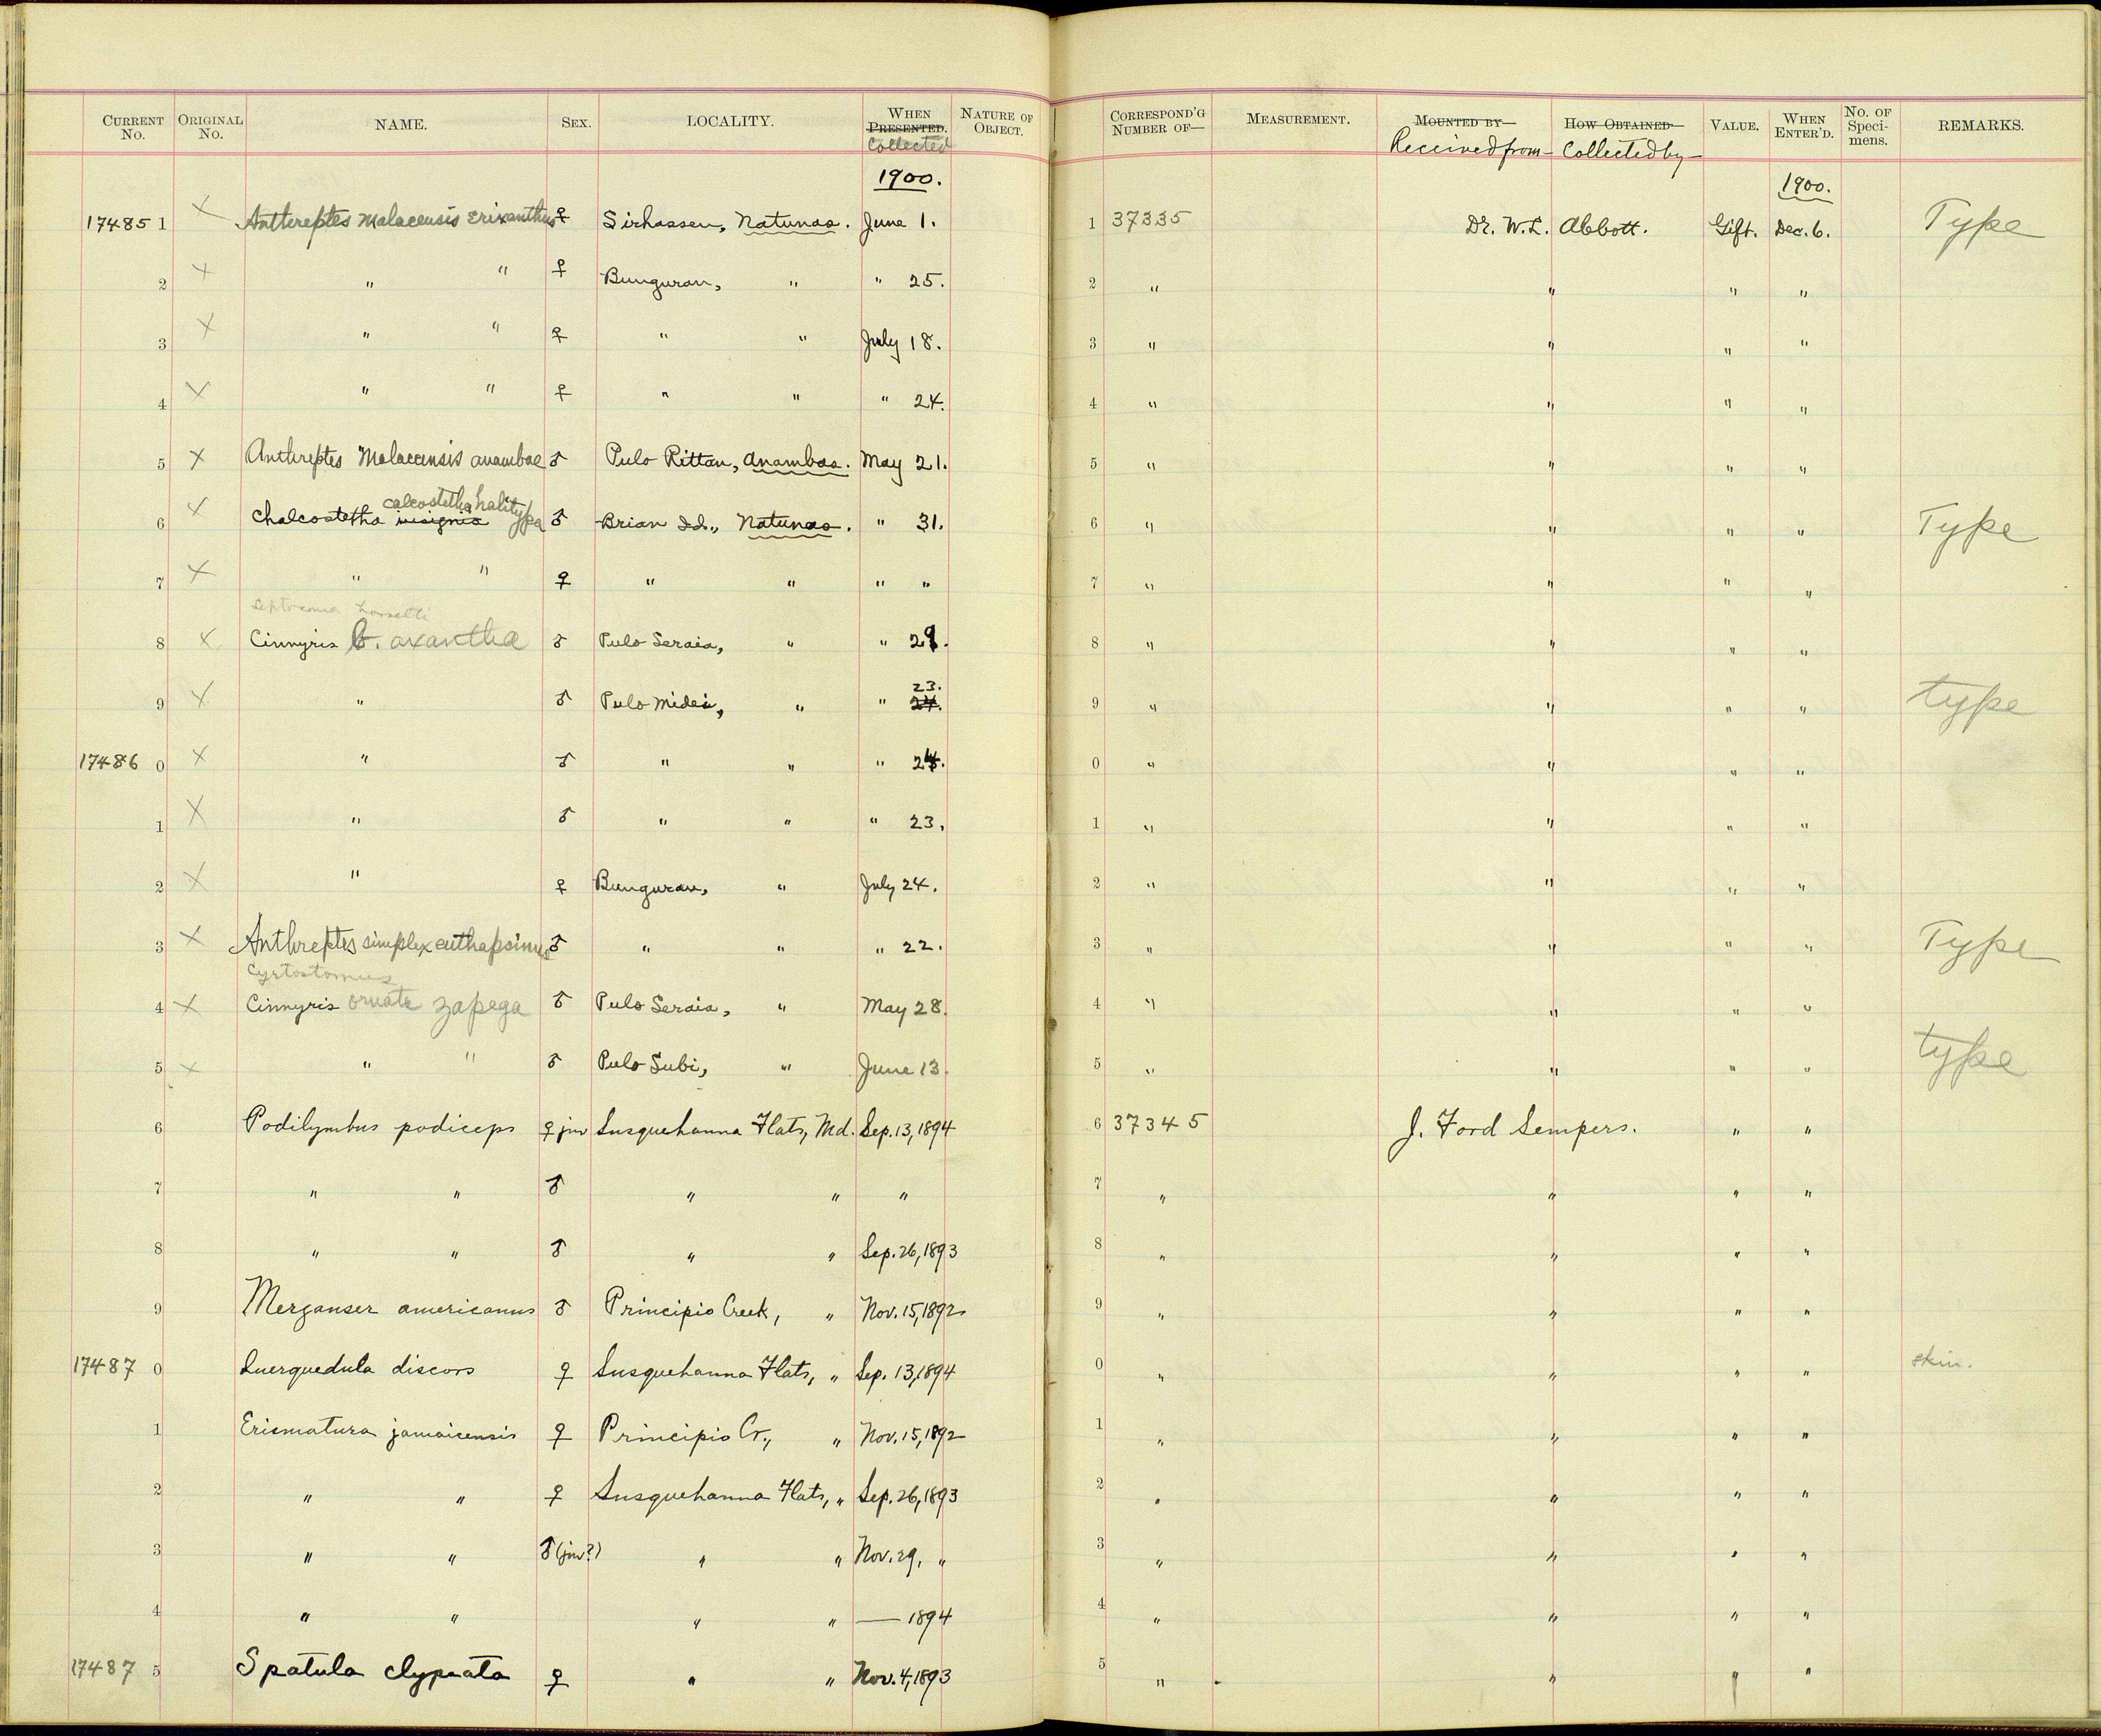 CURRENT No. ORIGINAL No. NAME. SEX. LOCALITY. WHEN PRESENTED. Collected NATURE OF OBJECT. CORRESPOND'G NUMBER OF— MEASUREMENT. MOUNTED BY— Received from— HOW OBTAINED— Collected by— VALUE. WHEN ENTER'D. No. OF Speci- mens. REMARKS.
1900. 1900.
174851 X Anthreptes malaccensis erixanthus ♀ Sirhassen, Natunas. June 1. 1 37335 Dr. W. L. Abbott. Gift. Dec. 6. Type
2 X " " ♀ Bunguran, " " 25. 2 " " " "
3 X " " ♀ " " July 18. 3 " " " "
4 X " " ♀ " " " 24. 4 " " " "
5 X Anthreptes Malaccensis anambae ♂ Pulo Rittan, Anambas. May 21. 5 " " " "
calcostetha halitypa
6 X Chalcostetha insignis ♂ Brian Id., Natunas. " 31. 6 " " " " Type
7 X " " ♀ " " " " 7 " " " "
Leptocoma hasseltii
8 X Cinnyris b. axantha ♂ Pulo Seraia, " " 29. 8 " " " "
23.
9 X " ♂ Pulo Midei, " " 24. 9 " " " " type
17486 0 X " ♂ " " " 24. 0 " " " "
1 X " ♂ " " " 23. 1 " " " "
2 X " ♀ Bunguran, " July 24. 2 " " " "
3 X Anthreptes simplex euthapsinus ♂ " " " 22. 3 " " " " Type
Cyrtostomus
4 X Cinnyris ornate zapega ♂ Pulo Seraia, " May 28. 4 " " " "
5 X " " ♂ Pulo Subi, " June 13. 5 " " " " type
6 Podilymbus podiceps ♀ juv Susquehanna Flats, Md. Sep. 13, 1894 6 37345 J. Ford Sempers. " "
7 " " ♂ " " " 7 " " " "
8 " " ♂ " " Sep. 26, 1893 8 " " " "
9 Merganser americanus ♂ Principio Creek, " Nov. 15, 1892 9 " " " "
17487 0 Querquedula discors ♀ Susquehanna Flats, " Sep. 13, 1894 0 " " " " skin.
1 Erismatura jamaicensis ♀ Principio Cr., " Nov. 15, 1892 1 " " " "
2 " " ♀ Susquehanna Flats, " Sep. 26, 1893 2 " " " "
3 " " ♂ (juv?) " " Nov. 29, " 3 " " " "
4 " " " " — 1894 4 " " " "
17487 5 Spatula clypeata ♀ " " Nov. 4, 1893 5 " " " "